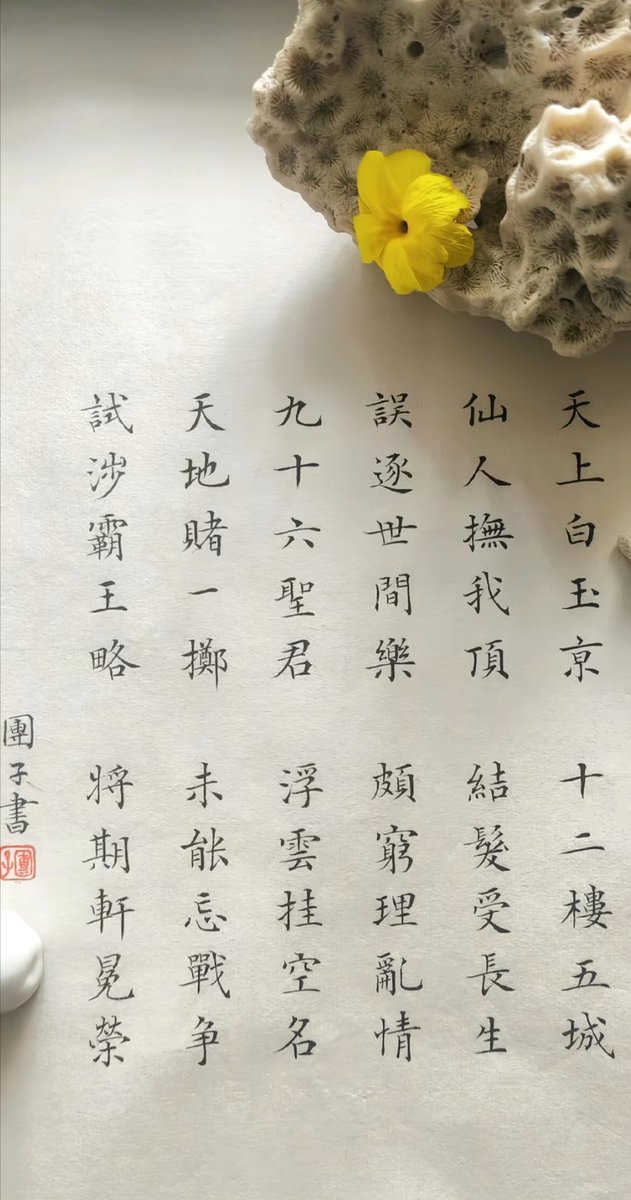 天上白玉京 十二樓五城
仙人撫我頂 結髮受長生
誤逐世間樂 頗窮理亂情
九十六聖君 浮雲挂空名
天地賭一擲 未能忘戰争
試涉霸王略 將期軒冕榮
團子書
團子